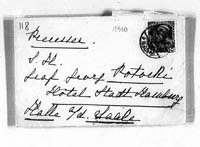 118
S. H.
Graf Georg Potocki
Hotel Stadt Hamburg
Halle a/d. Saale